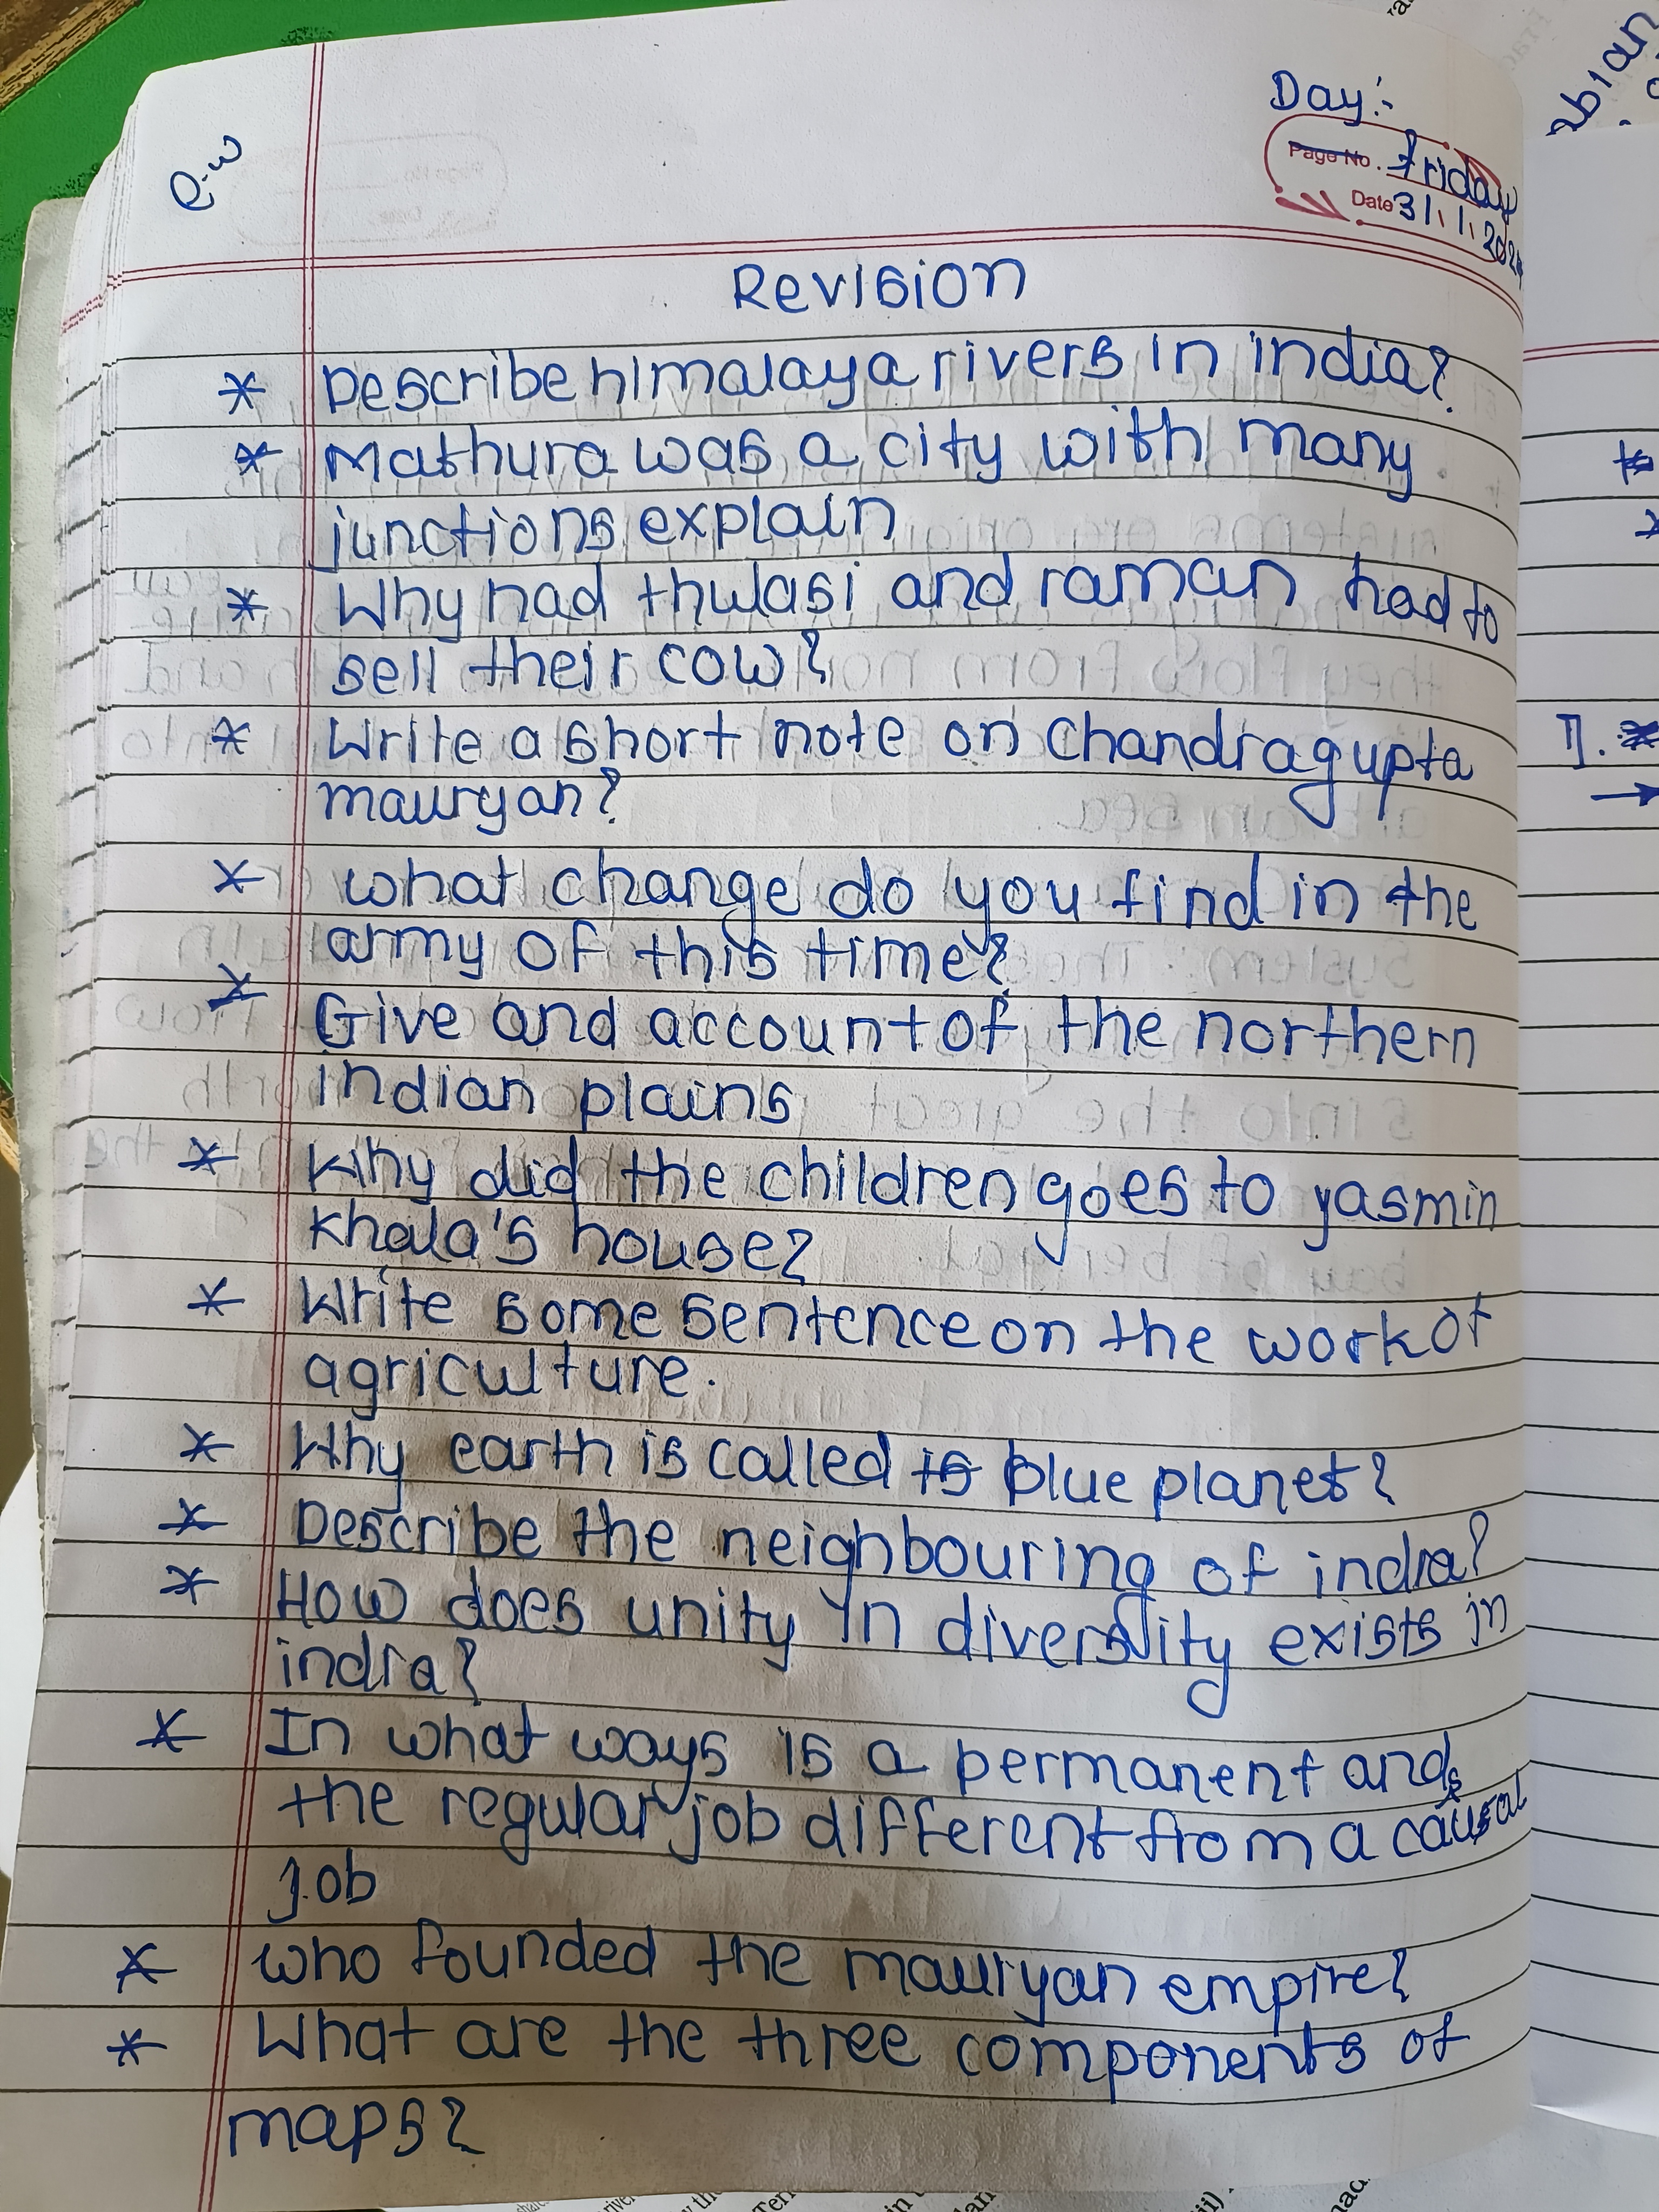 C.w
Day:-
Page No. Friday
Date 31/1/2024
Revision
* Describe himalaya rivers in india?
* Mathura was a city with many
junctions explain
* Why had thulasi and raman had to
sell their cow?
* Write a short note on Chandragupta
mauryan?
* what change do you find in the
army of this time?
* Give and account of the northern
indian plains
* Why did the children goes to yasmin
khala's house?
* Write some sentence on the work of
agriculture.
* Why earth is called is blue planet?
* Describe the neighbouring of india?
* How does unity in diversity exists in
india?
* In what ways is a permanent and
the regular job different from a causal
job
* who founded the mauryan empire?
* What are the three components of
maps?